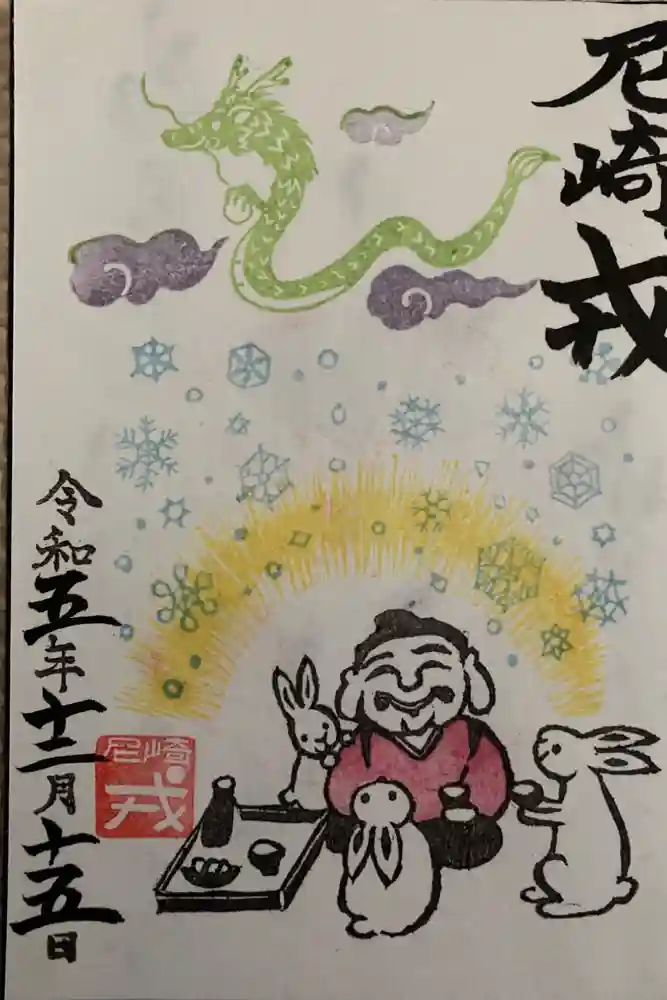 尼崎戎
令和五年十二月十五日
尼崎
戎